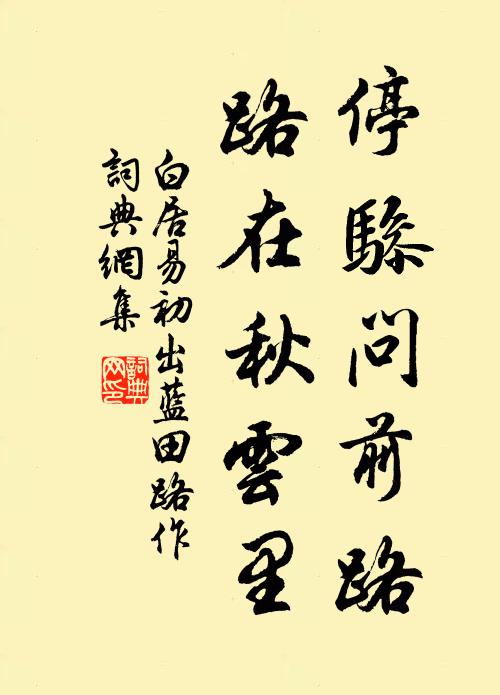 停驂問前路
路在秋雲里
白居易初出藍田路作
詞典網集
詞典
网印